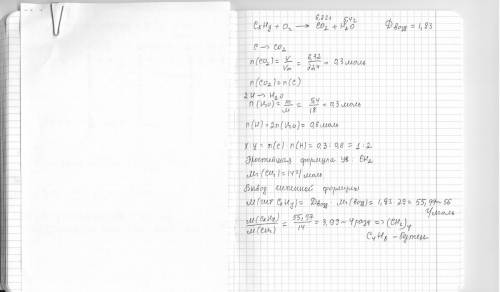 6,72л 5,4г
CxHy + O₂ → CO₂ + H₂O Dвозд = 1,93
C → CO₂
n(CO₂) = V/Vm = 6,72/22,4 = 0,3 моль
n(CO₂) = n(C)
2H → H₂O
n(H₂O) = m/M = 5,4/18 = 0,3 моль
n(H) = 2n(H₂O) = 0,6 моль
x:y = n(C) n(H) = 0,3 : 0,6 = 1 : 2
Простейшая формула УВ: CH₂
Mr(CH₂) = 14 г/моль
Вывод истинной формулы
M(ист CxHy) = Dвозд Mr(возд) = 1,93·29 = 55,97 ~ 56
г/моль
M(CxHy)/M(CH₂) = 55,97/14 = 3,99 ~ 4 раза => (CH₂)₄
C₄H₈ - бутен